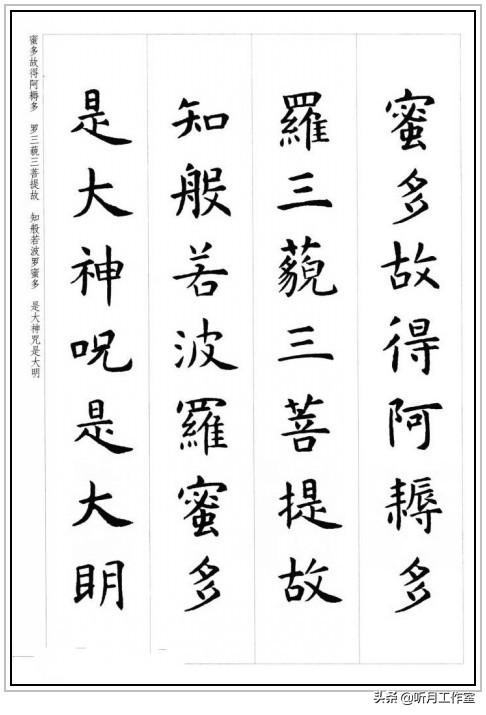 蜜多故得阿耨多
羅三藐三菩提故
知般若波羅蜜多
是大神呪是大明
蜜多故得阿耨多　罗三藐三菩提故　知般若波罗蜜多　是大神咒是大明
头条 @听月工作室